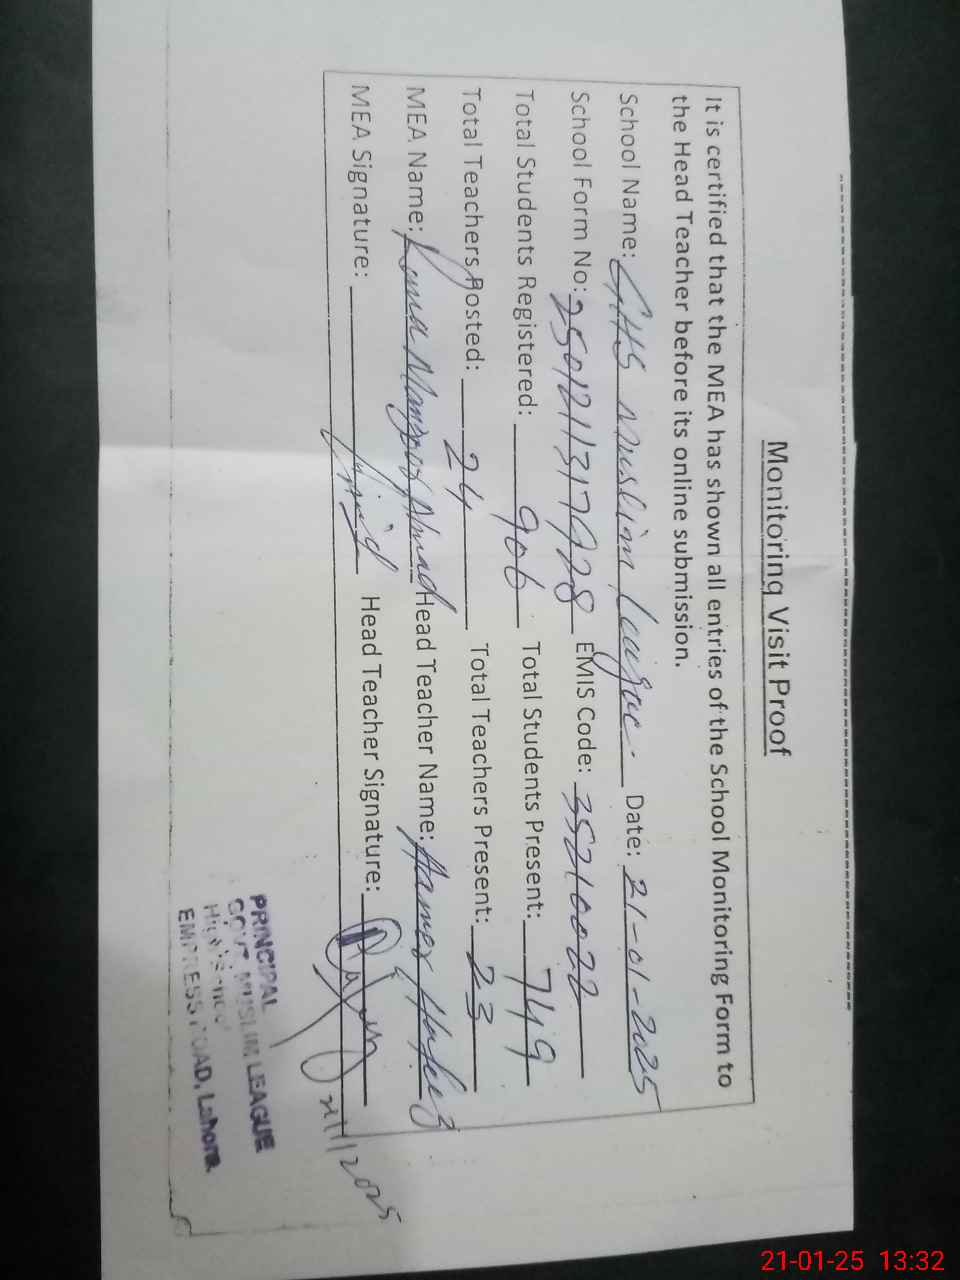 Monitoring Visit Proof
It is certified that the MEA has shown all entries of the School Monitoring Form to
the Head Teacher before its online submission.
School Name: GHS Muslim League Date: 21-01-2025
School Form No: EMIS Code: 35210022
Total Students Registered: 906 Total Students Present: 749
Total Teachers Posted: 24 Total Teachers Present: 23
MEA Name: Ahmad Head Teacher Name: Hafeez
MEA Signature: Head Teacher Signature:
21/1/2025
PRINCIPAL
GOVT. MUSLIM LEAGUE
High School
EMPRESS ROAD, Lahore.
21-01-25 13:32